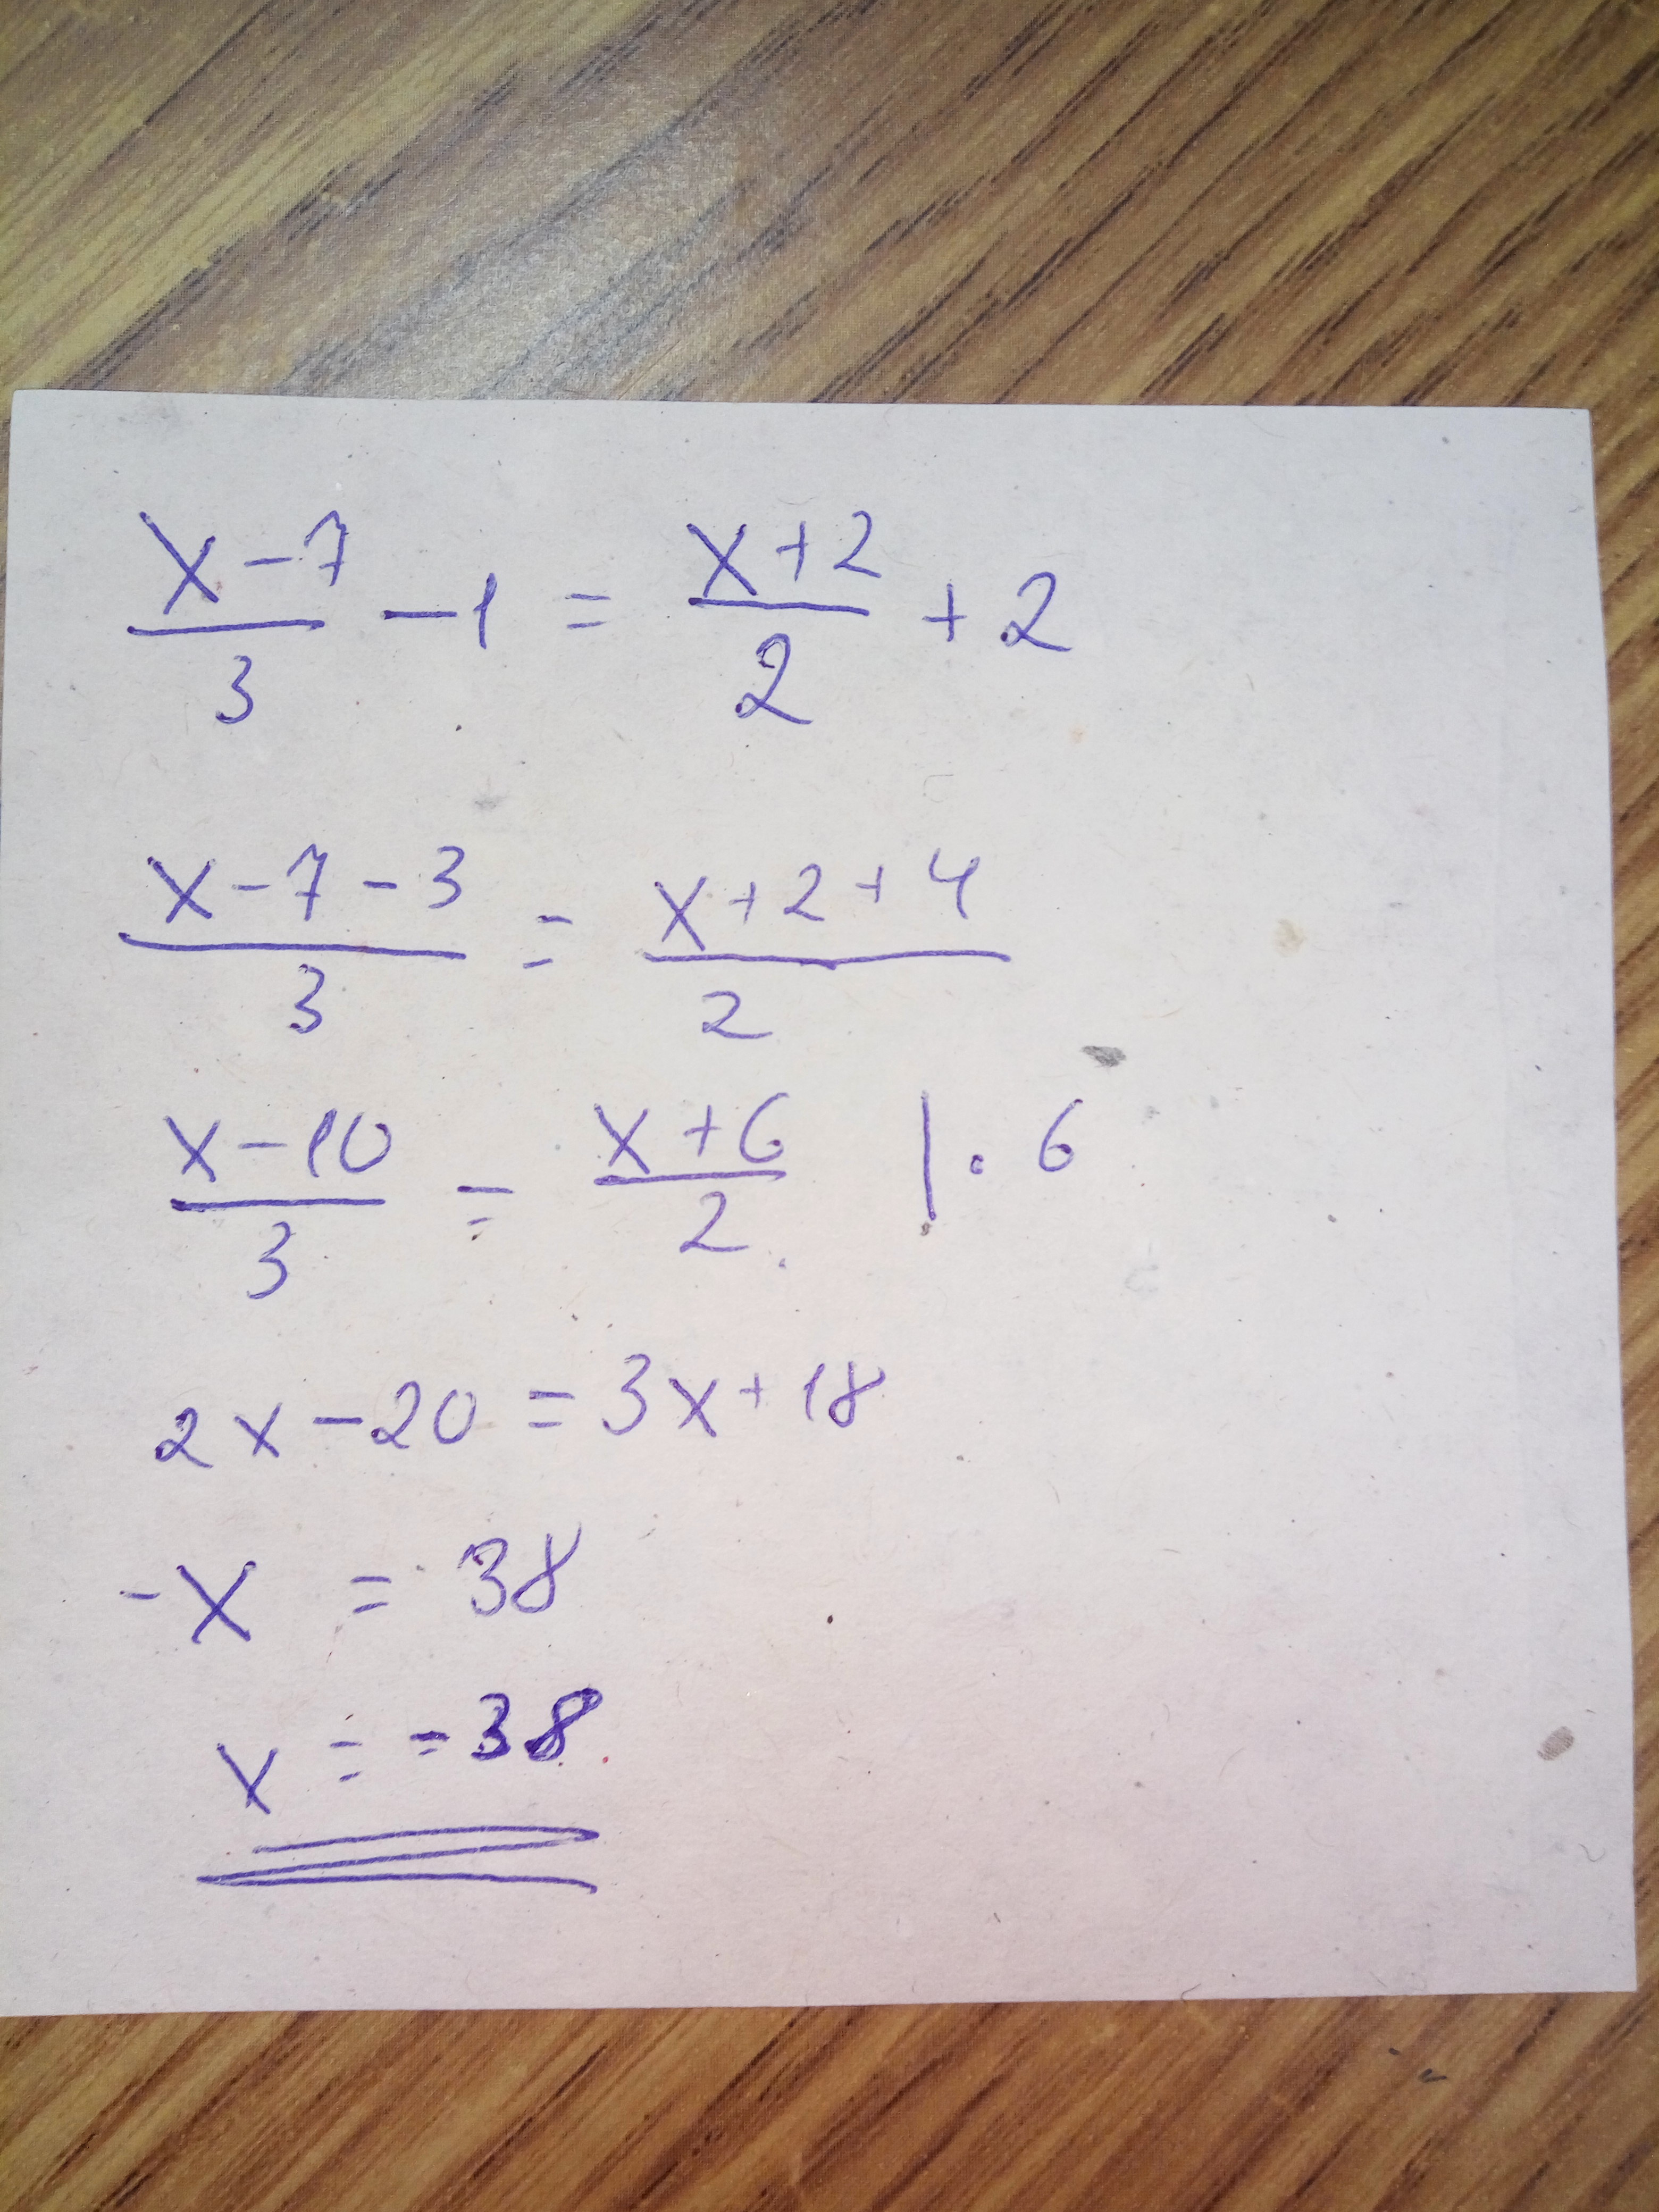 x-7/3 -1 = x+2/2 +2
x-7-3/3 = x+2+4/2
x-10/3 = x+6/2 | · 6
2x-20=3x+18
-x = 38
x = -38